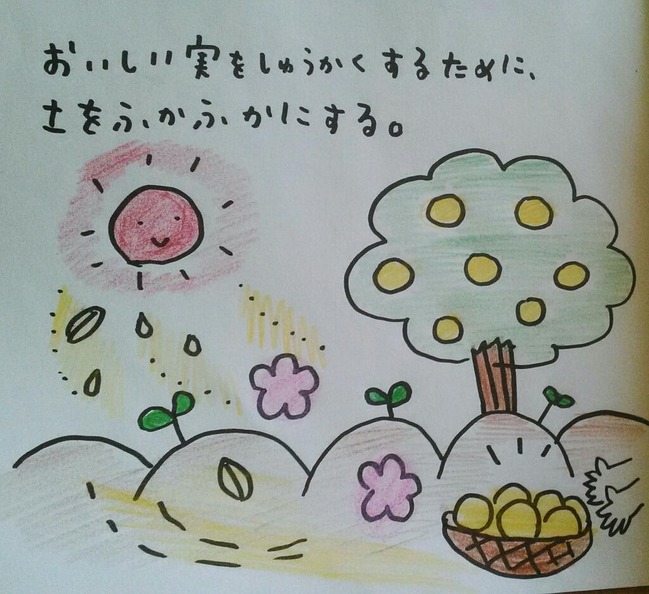 おいしい実をしゅうかくするために、
土をふかふかにする。